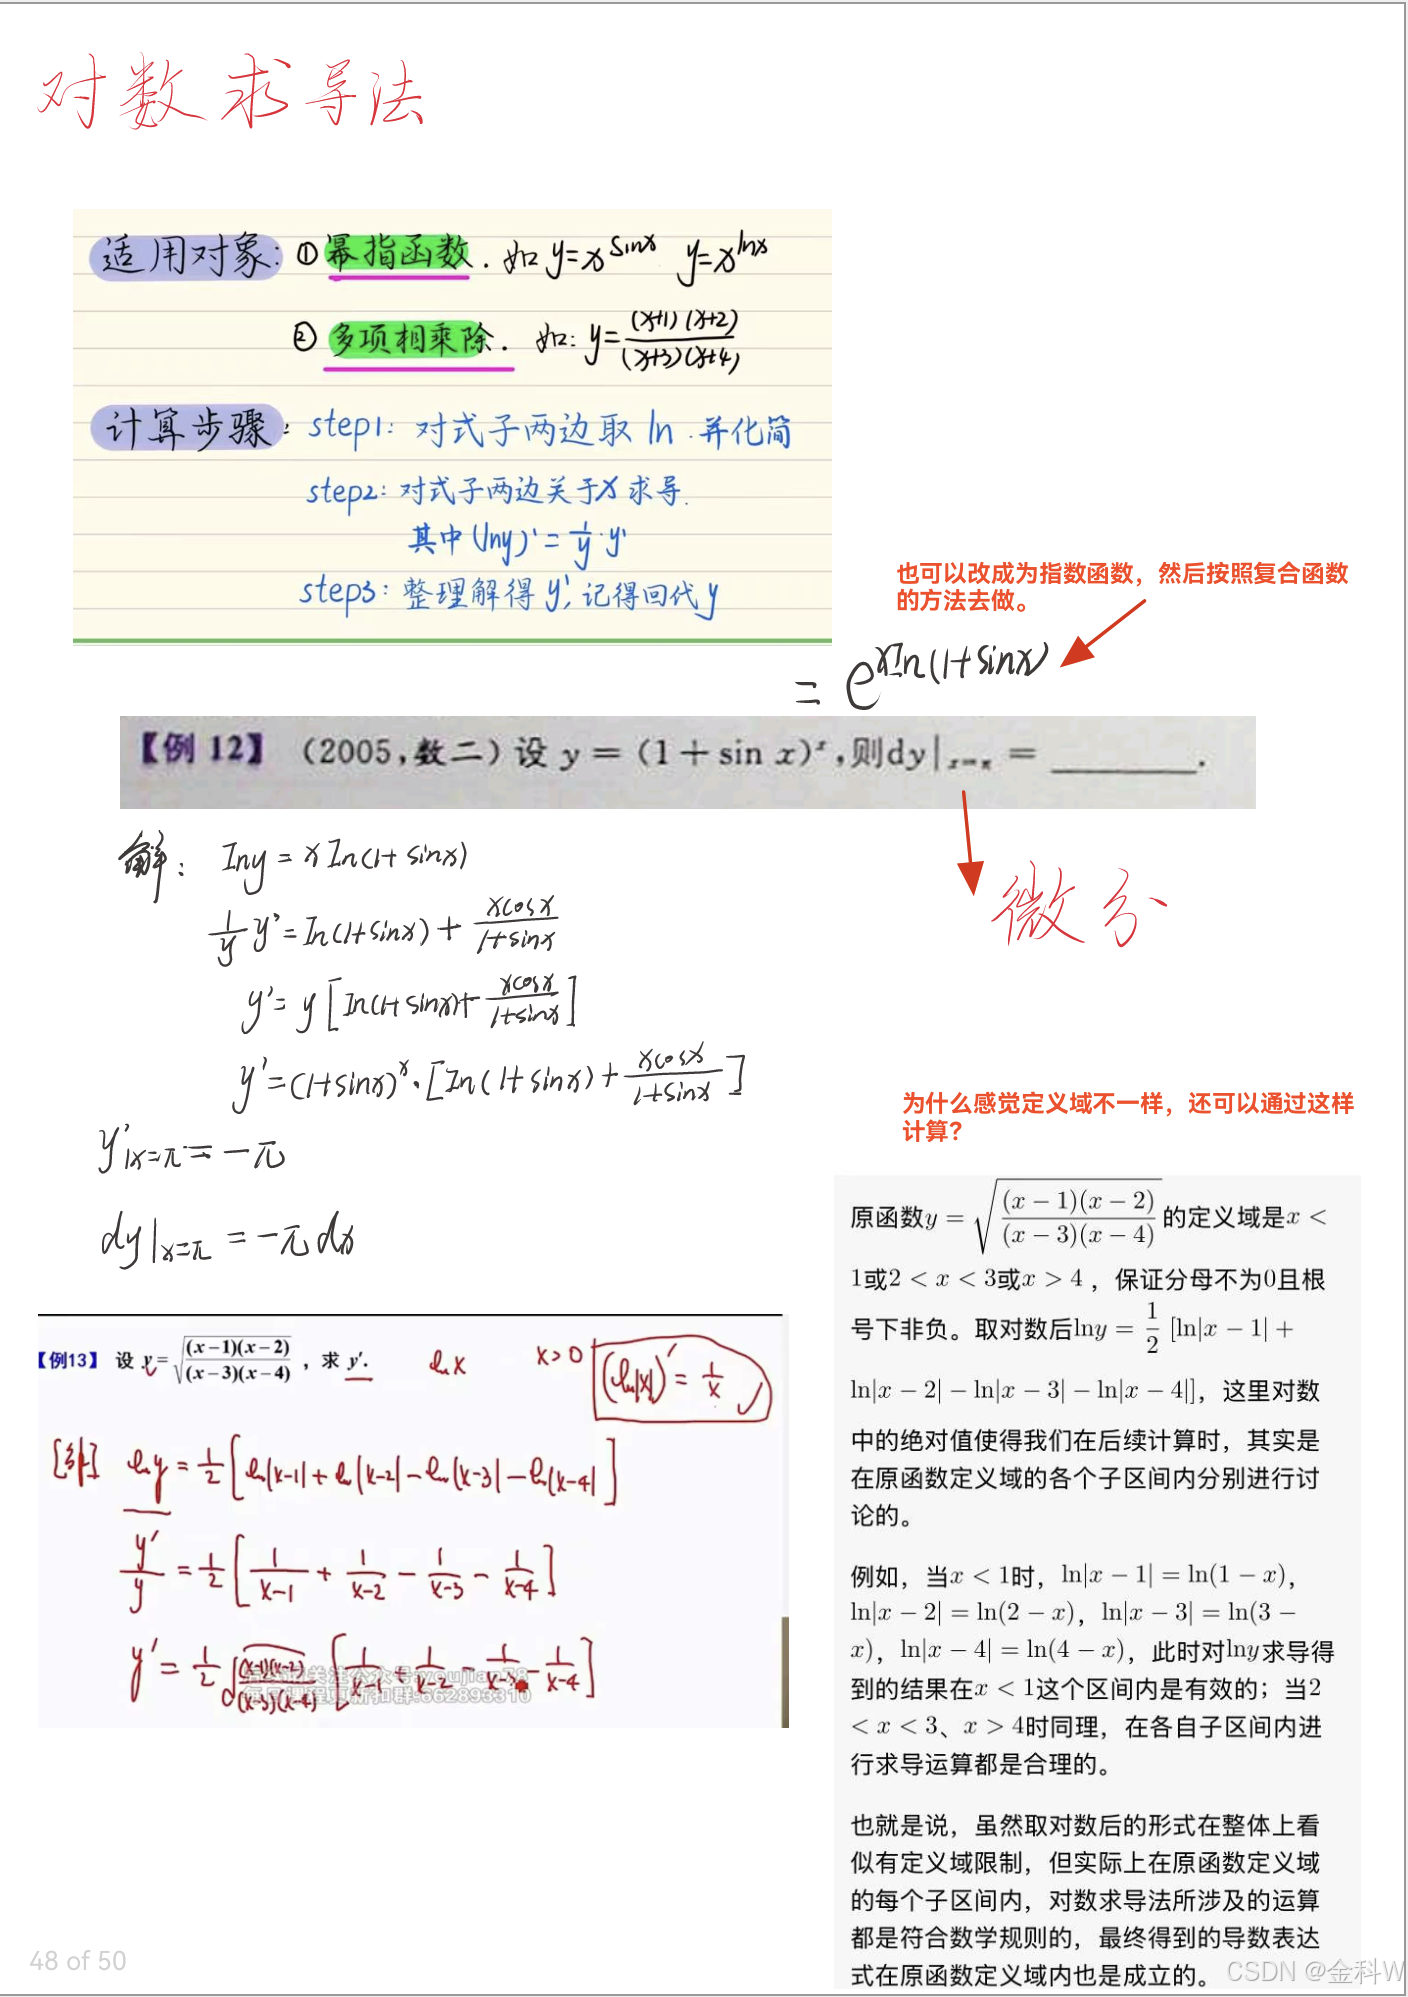 对数求导法
适用对象: ①幂指函数. 如 y=x^{sinx} y=x^{lnx}
②多项相乘除. 如: y=\frac{(x+1)(x+2)}{(x+3)(x+4)}
计算步骤: step1: 对式子两边取 ln. 并化简
step2: 对式子两边关于x求导.
其中(lny)'=\frac{1}{y}·y'
step3: 整理解得y', 记得回代y
也可以改成为指数函数，然后按照复合函数
的方法去做。
= e^{xIn(1+sinx)}
【例 12】 (2005,数二) 设 y = (1 + sin x)^x,则dy|_{x=π} = ______.
微分
解: Iny = xIn(1+sinx)
\frac{1}{y}y'=In(1+sinx)+\frac{xcosx}{1+sinx}
y'= y[In(1+sinx)+\frac{xcosx}{1+sinx}]
y'=(1+sinx)^x·[In(1+sinx)+\frac{xcosx}{1+sinx}]
y'|x=π = -π
dy|x=π = -πdx
为什么感觉定义域不一样，还可以通过这样
计算?
原函数y = \sqrt{\frac{(x-1)(x-2)}{(x-3)(x-4)}}的定义域是x <
1或2 < x < 3或x > 4，保证分母不为0且根
号下非负。取对数后lny = \frac{1}{2} [ln|x − 1| +
ln|x − 2| − ln|x − 3| − ln|x − 4|]，这里对数
中的绝对值使得我们在后续计算时，其实是
在原函数定义域的各个子区间内分别进行讨
论的。
例如，当x < 1时，ln|x − 1| = ln(1 − x)，
ln|x − 2| = ln(2 − x)，ln|x − 3| = ln(3 −
x)，ln|x − 4| = ln(4 − x)，此时对lny求导得
到的结果在x < 1这个区间内是有效的；当2
< x < 3、x > 4时同理，在各自子区间内进
行求导运算都是合理的。
也就是说，虽然取对数后的形式在整体上看
似有定义域限制，但实际上在原函数定义域
的每个子区间内，对数求导法所涉及的运算
都是符合数学规则的，最终得到的导数表达
式在原函数定义域内也是成立的。
【例13】 设 y=\sqrt{\frac{(x-1)(x-2)}{(x-3)(x-4)}}，求 y'.
ln x x>0 (ln|x|)' = \frac{1}{x}
[解] ln y = \frac{1}{2}[ln|x-1|+ln|x-2|-ln|x-3|-ln|x-4|]
\frac{y'}{y} = \frac{1}{2}[\frac{1}{x-1}+\frac{1}{x-2}-\frac{1}{x-3}-\frac{1}{x-4}]
y' = \frac{1}{2}\sqrt{\frac{(x-1)(x-2)}{(x-3)(x-4)}}[\frac{1}{x-1}+\frac{1}{x-2}-\frac{1}{x-3}-\frac{1}{x-4}]
48 of 50
CSDN @金科W